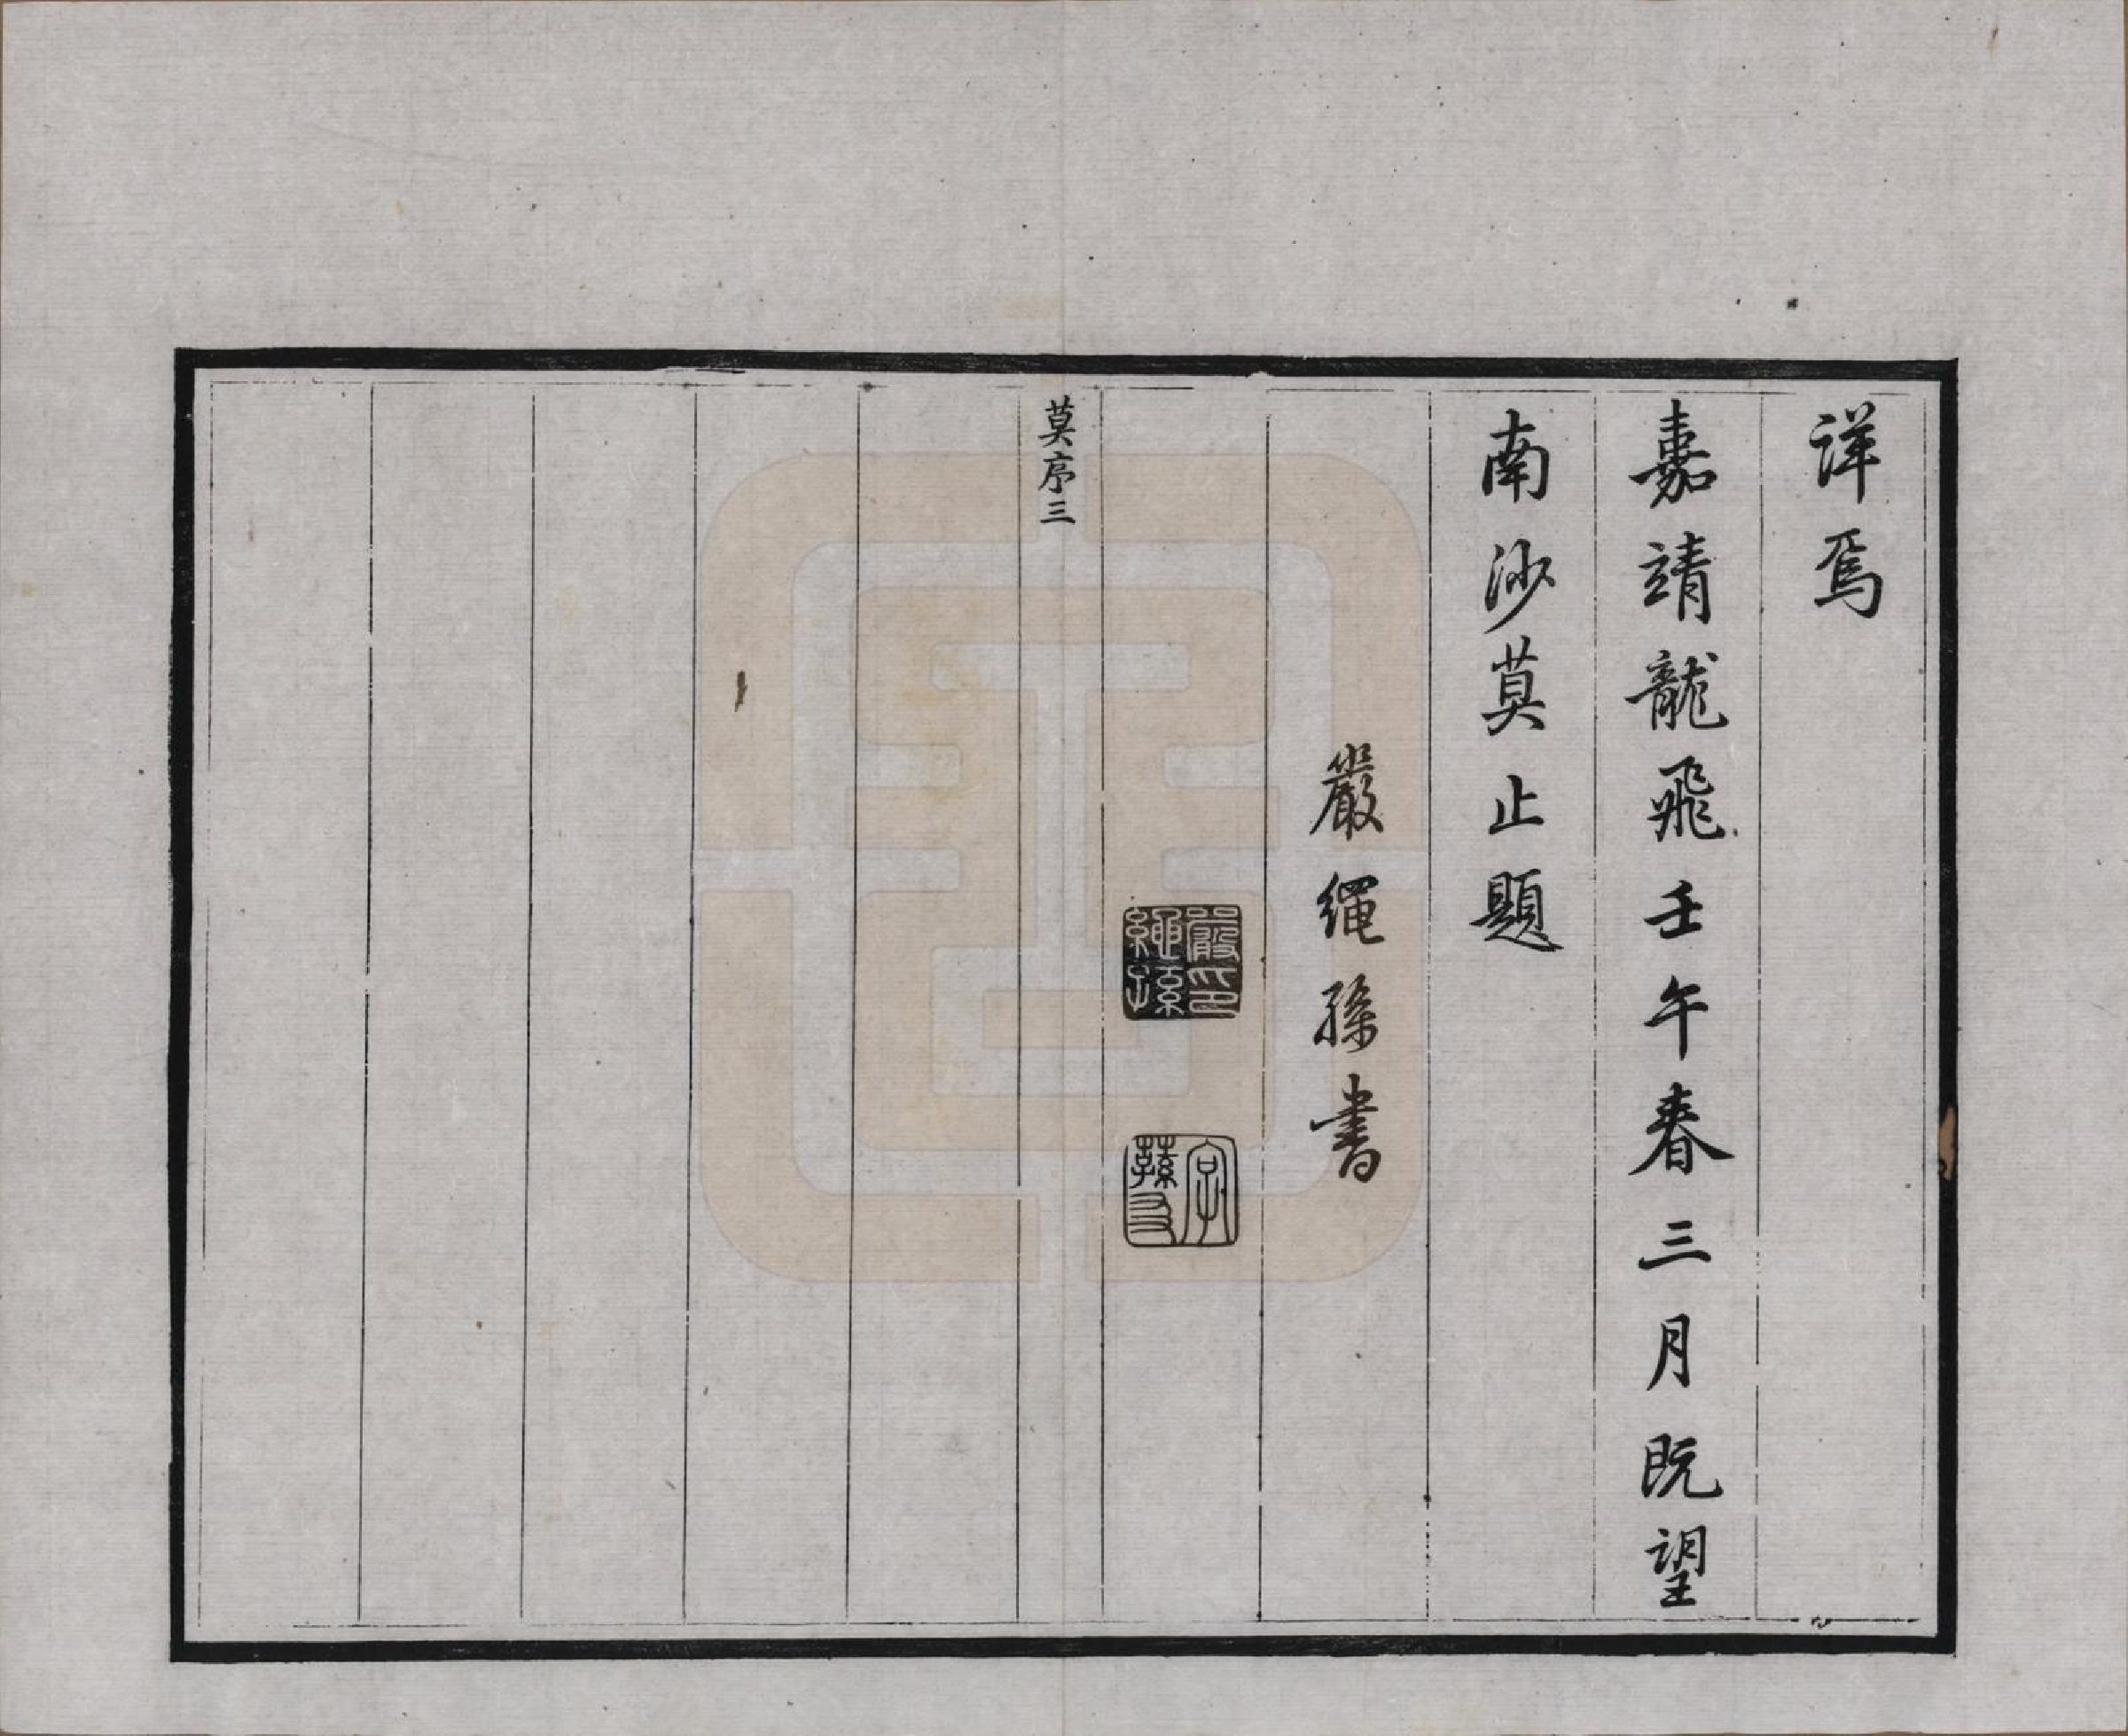 詳焉
嘉靖龍飛壬午春三月既望
南沙莫止題
嚴繩孫書
嚴印
繩孫
字
蓀友
莫序三